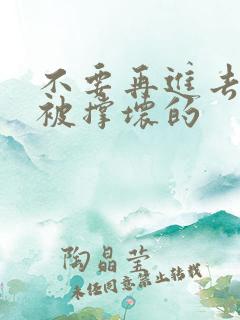 不要再进去
被撑坏的
陶晶莹
未经同意禁止转载